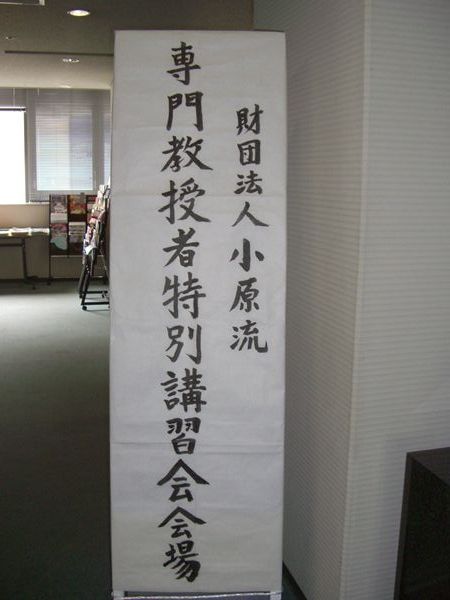 財団法人小原流
専門教授者特別講習会会場